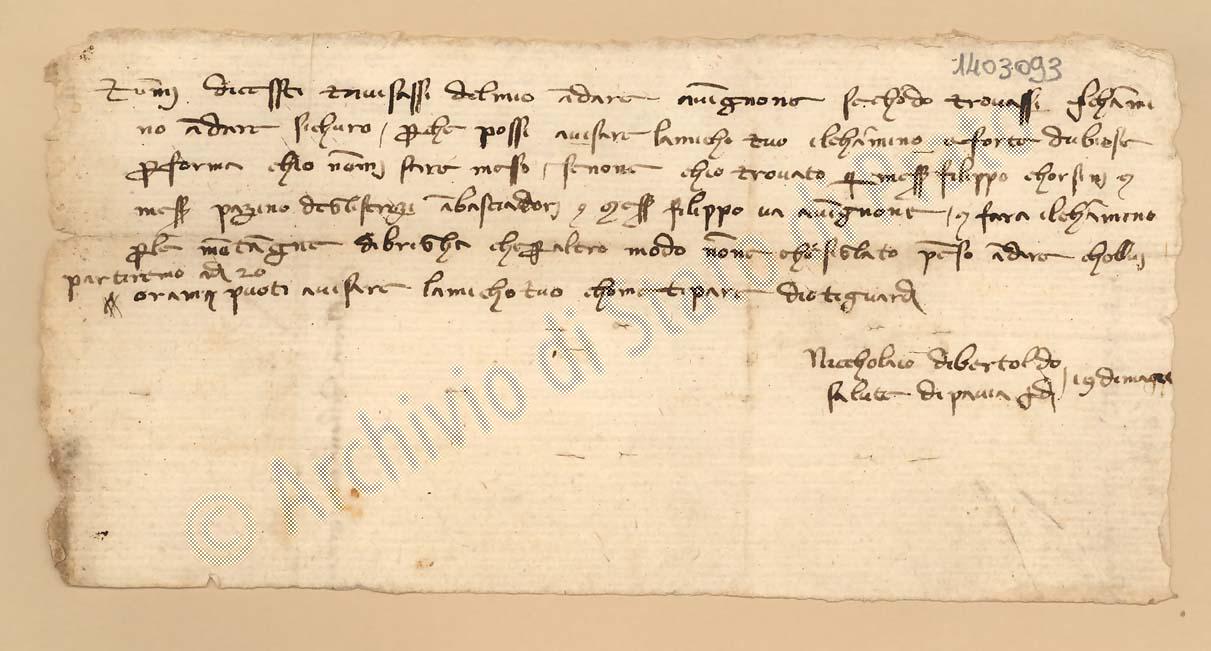 1403093
Tu mi dicessti tavisassi del mio andare a vingnone sechodo trovassi il chami
no andare sichuro, perche possi avisare lamicho tuo il chamino e forte dubioso
per forma chio non mi sare messo, senone chio trovato messer filippo chorsini e
messer pazino deglistrozi anbasciadori e messer filippo va a vingnone, e fara il chamino
per le montangne di che per altro modo none penso andare chollui
partiremo a di 20
oramai puoti avisare lamicho tuo chome ti pare dio ti guardi
Nicholaio di bertoldo
salute di pavia 19 di
© Archivio di Stato di Prato